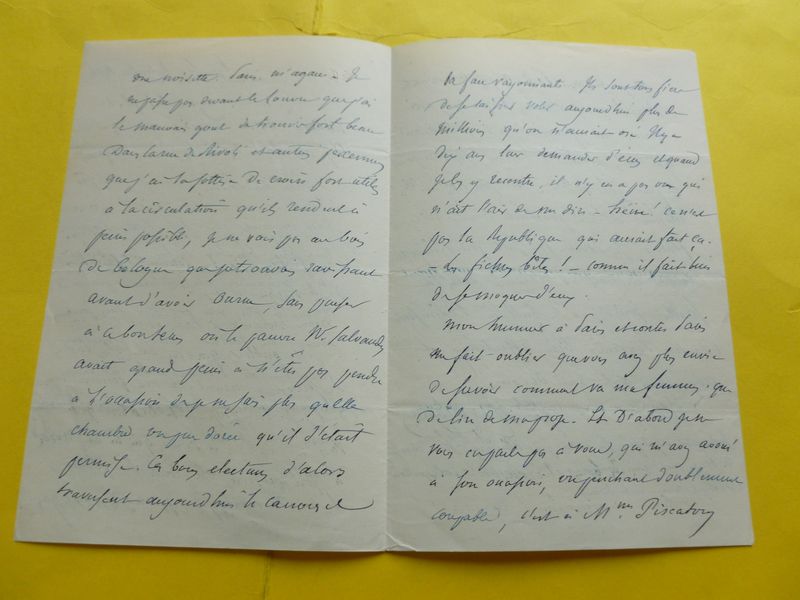 une noisette. Paris m'agace - Je
ne passe pas devant le Louvre que j'ai
le mauvais gout de trouver fort beau
Dans la rue de Rivoli et autres
que j'ai la sottise de croire fort utiles
à la circulation qu'ils rendent à
peine possible, je ne vais pas au bois
de bologne que je trouvais ravissant
avant d'avoir, sans penser
à ce bon tems où le pauvre M. Salvandy
avait grand peine à n'être pas pendu
à l'occasion de je ne sais plus quelle
chambre un peu dorée qu'il s'était
permise. Ces bons electeurs d'alors
traversent aujourd'hui le carrousel
la face rayonnante. Ils sont tous fiers
de se laisser voler aujourd'hui plus de
millions qu'on n'aurait osé il y a
dix ans leur demander d'écus et quand
je les y rencontre, il n'y en a pas un qui
n'ait l'air de me dire - hein! ce n'est
pas la République qui aurait fait ça.
- Les fichues bêtes! - comme il fait bien
de se moquer d'eux.
mon humeur à Paris et contre Paris
me fait oublier que vous avez plus envie
de savoir comment va ma femme que
de lire de ma prose. Et D'abord je ne
vous en parle pas à vous, qui m'avez avoué
à son occasion, un penchant doublement
coupable, c'est à Mme Piscatory